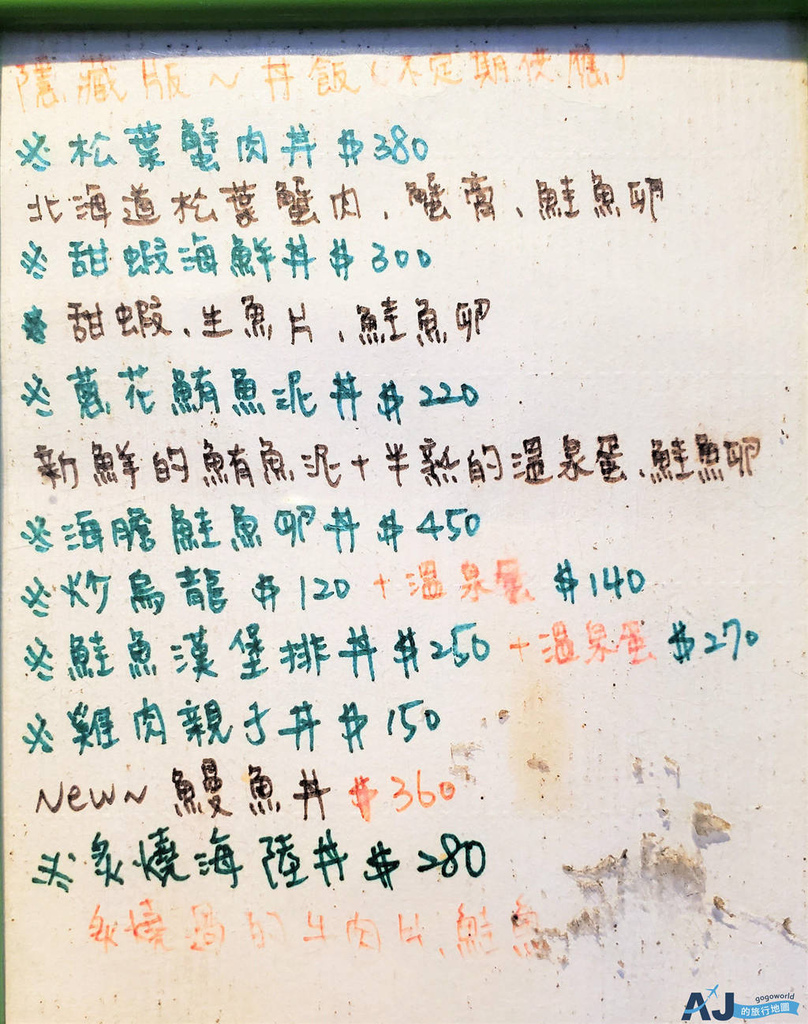 隱藏版~丼飯(不定期供應)
※松葉蟹肉丼 $380
北海道松葉蟹肉、蟹膏、鮭魚卵
※甜蝦海鮮丼 $300
甜蝦、生魚片、鮭魚卵
※蔥花鮪魚泥丼 $220
新鮮的鮪魚泥+半熟的溫泉蛋、鮭魚卵
※海膽鮭魚卵丼 $450
※炒烏龍 $120 +溫泉蛋 $140
※鮭魚漢堡排丼 $250 +溫泉蛋 $270
※雞肉親子丼 $150
New~ 鰻魚丼 $360
※炙燒海陸丼 $280
炙燒過的牛肉片、鮭魚
gogoworld
AJ的旅行地圖